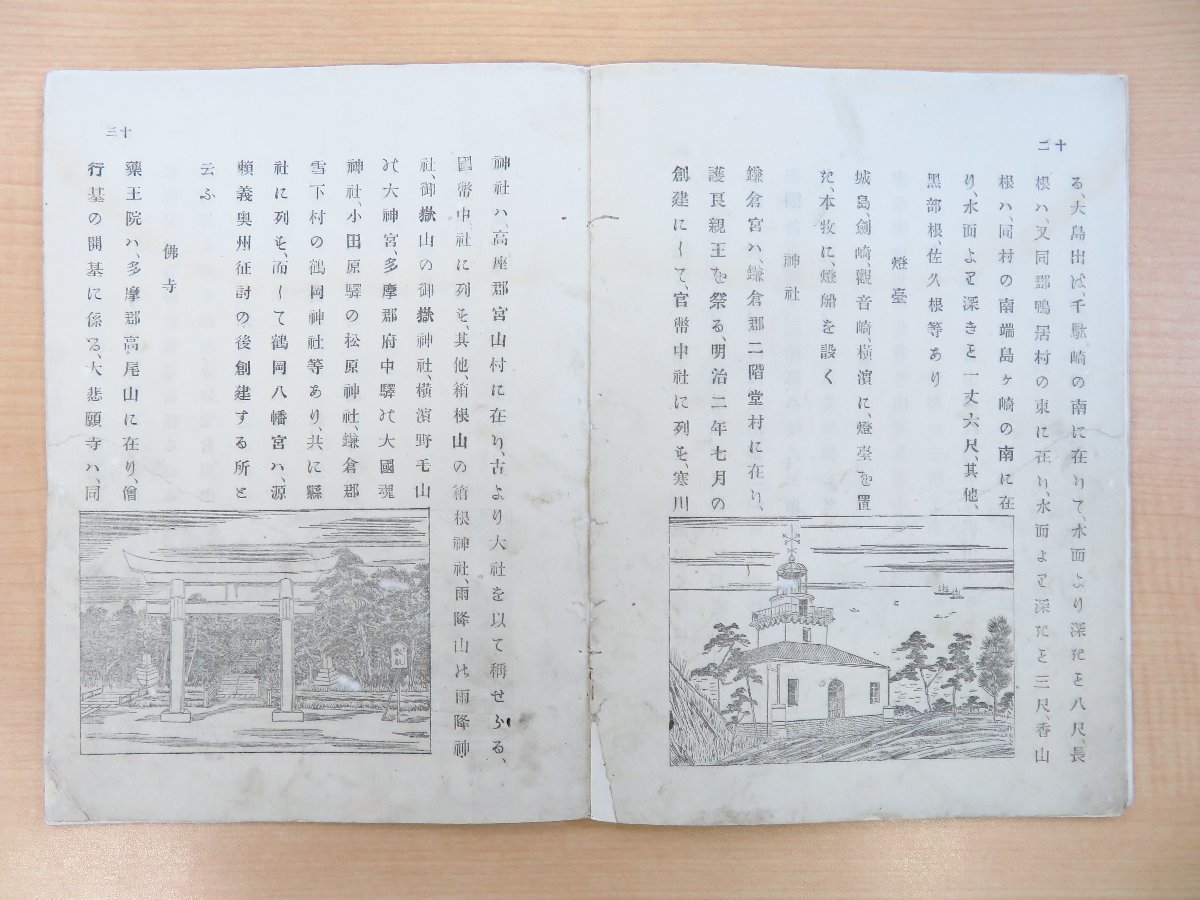 十二
る、大島出ば、千駄崎の南に在りて、水面より深さを八尺、長
根ハ、又同郡鴨居村の東に在り、水面より深さを三尺、香山
根ハ、同村の南端島ヶ崎の南に在
り、水面より深さを一丈六尺、其他、
黒部根、佐久根等あり
燈臺
城島、劍崎、觀音崎、橫濱に、燈臺を置
き、本牧に、燈船を設く
神社
鎌倉宮ハ、鎌倉郡二階堂村に在り、
護良親王を祭る、明治二年七月の
創建にして、官幣中社に列を、寒川
十三
神社ハ、高座郡宮山村に在り、古より大社を以て稱せらる、
國幣中社に列を、其他、箱根山の箱根神社、雨降山の雨降神
社、御嶽山の御嶽神社、橫濱野毛山
の大神宮、多摩郡府中驛の大國魂
神社、小田原驛の松原神社、鎌倉郡
雪下村の鶴岡神社等あり、共に縣
社に列を、而して鶴岡八幡宮ハ、源
賴義奧州征討の後創建する所と
云ふ
佛寺
藥王院ハ、多摩郡高尾山に在り、僧
行基の開基に係る、大悲願寺ハ、同